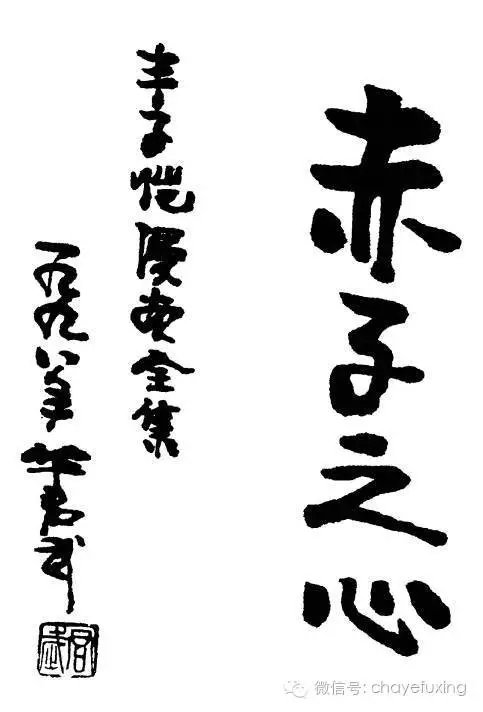 赤子之心
丰子恺漫画全集
一九九八年 华君武
君武
微信号: chayefuxing